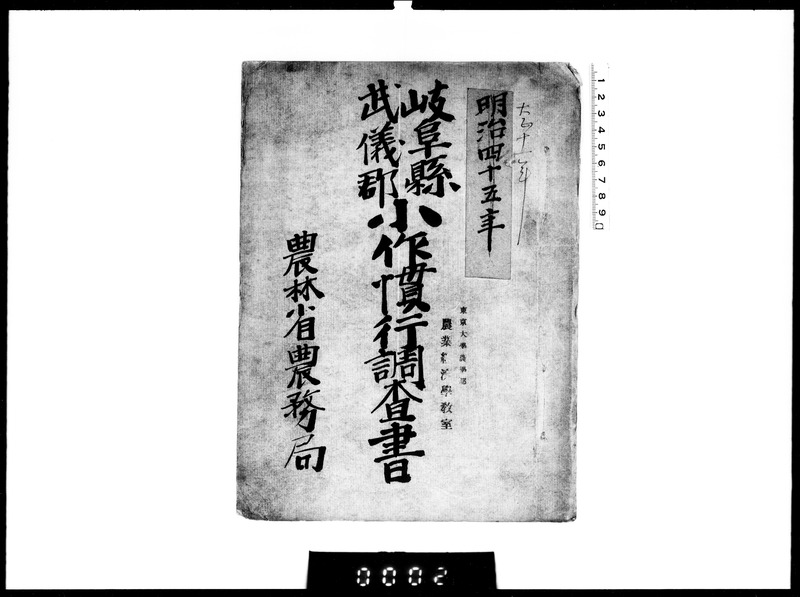 大正十一年
明治四十五年
岐阜縣
武儀郡
小作慣行調査書
東京大學農學部
農業經濟學教室
農林省農務局
1 2 3 4 5 6 7 8 9
0002